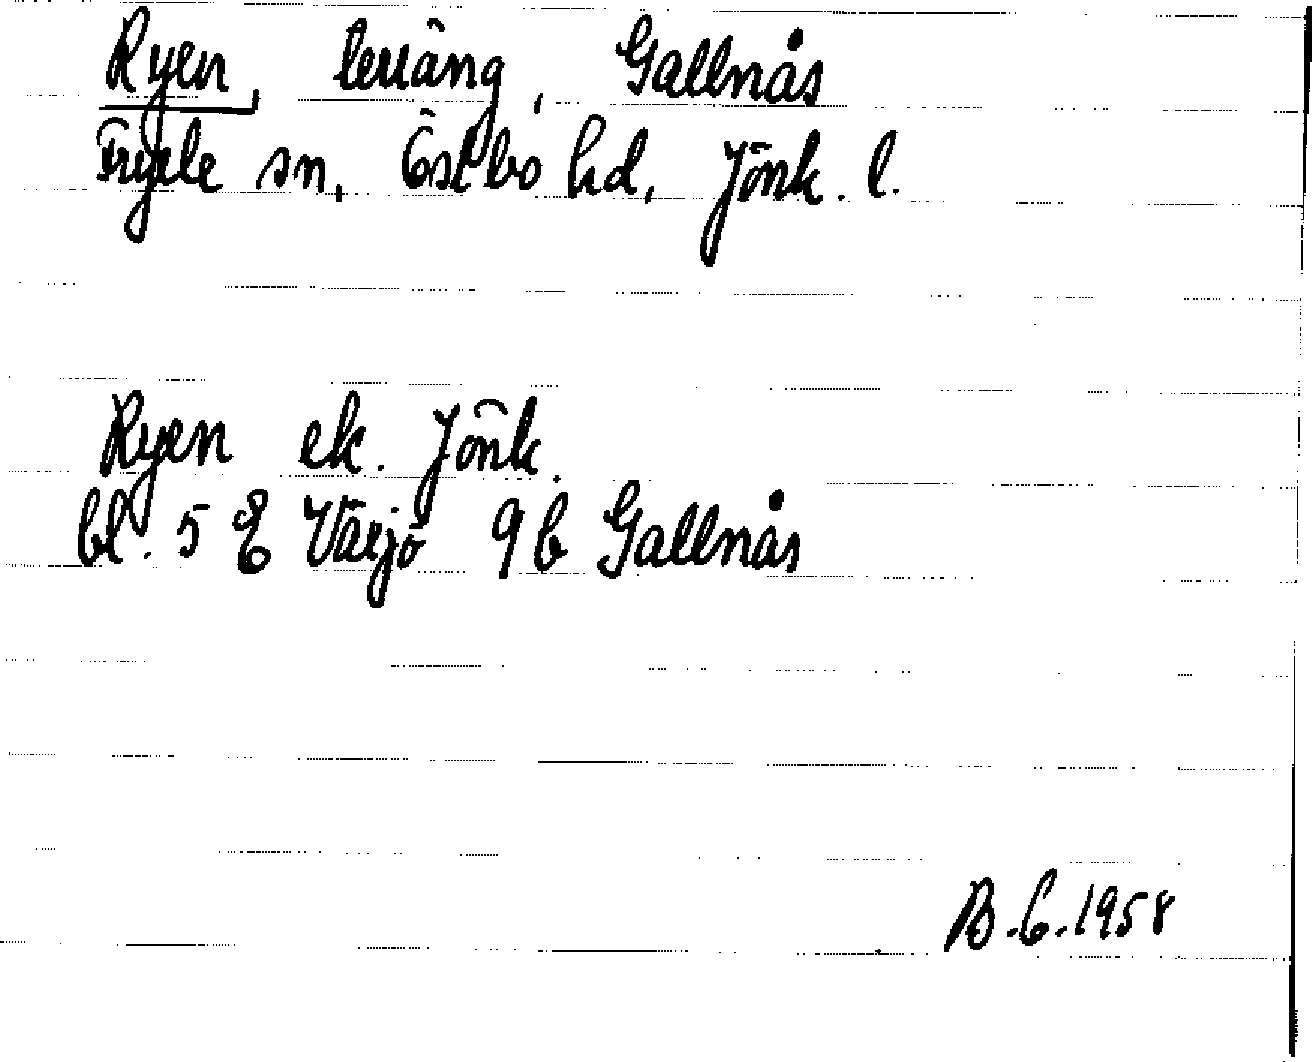 Ryen, terräng, Gallnås
Tryele sn, Östbo hd, Jönk. l.
Ryen ek. Jönk.
bl. 5 E Värjö 9 b Gallnås
B.6.1958